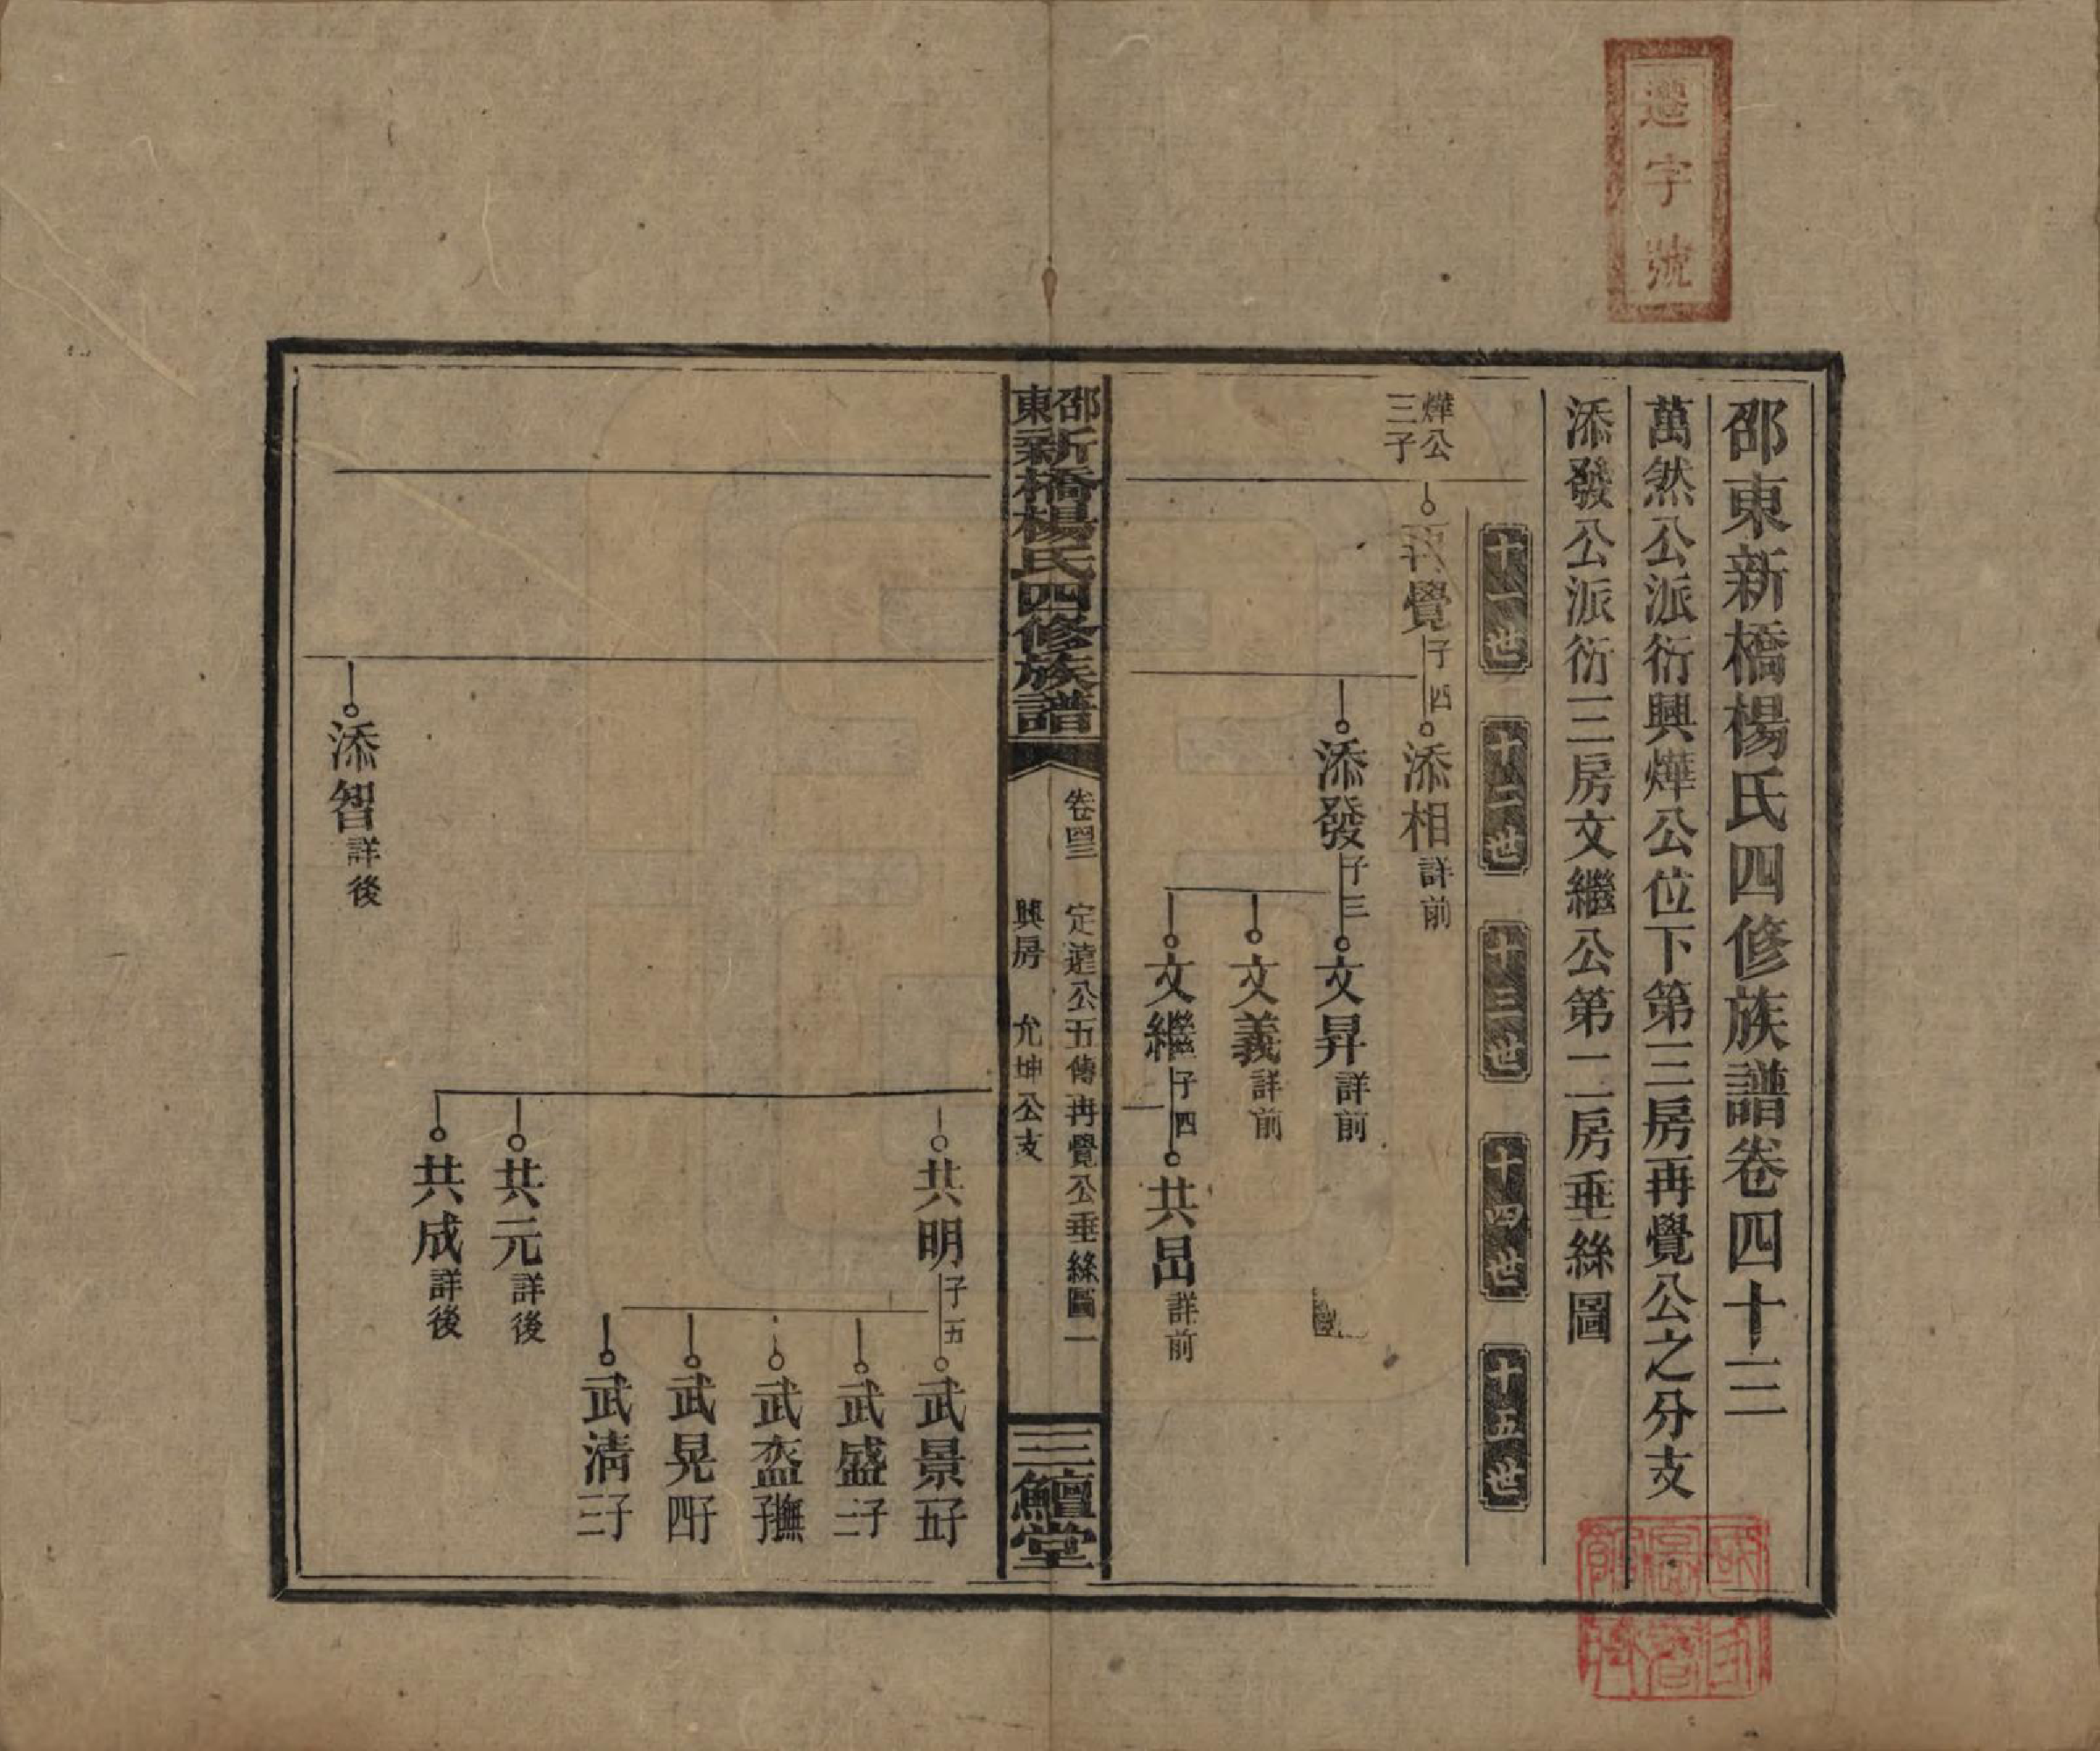 遷字號
邵東新橋楊氏四修族譜卷四十三
萬然公派衍興燁公位下第三房再覺公之分支
添發公派衍三房文繼公第二房垂絲圖
十一世 十二世 十三世 十四世 十五世
燁公
三子
再覺 子四
添相 詳前
添發 子三
文昇 詳前
文義 詳前
文繼 子四
共昌 詳前
邵東新橋楊氏四修族譜
卷四三 定遠公五傳再覺公垂絲圖一
興房 允坤公支
三鱣堂
共明 子五
武景 子五
武盛 子二
武盔 子撫
武晃 子四
武清 子三
共元 詳後
共成 詳後
添智 詳後